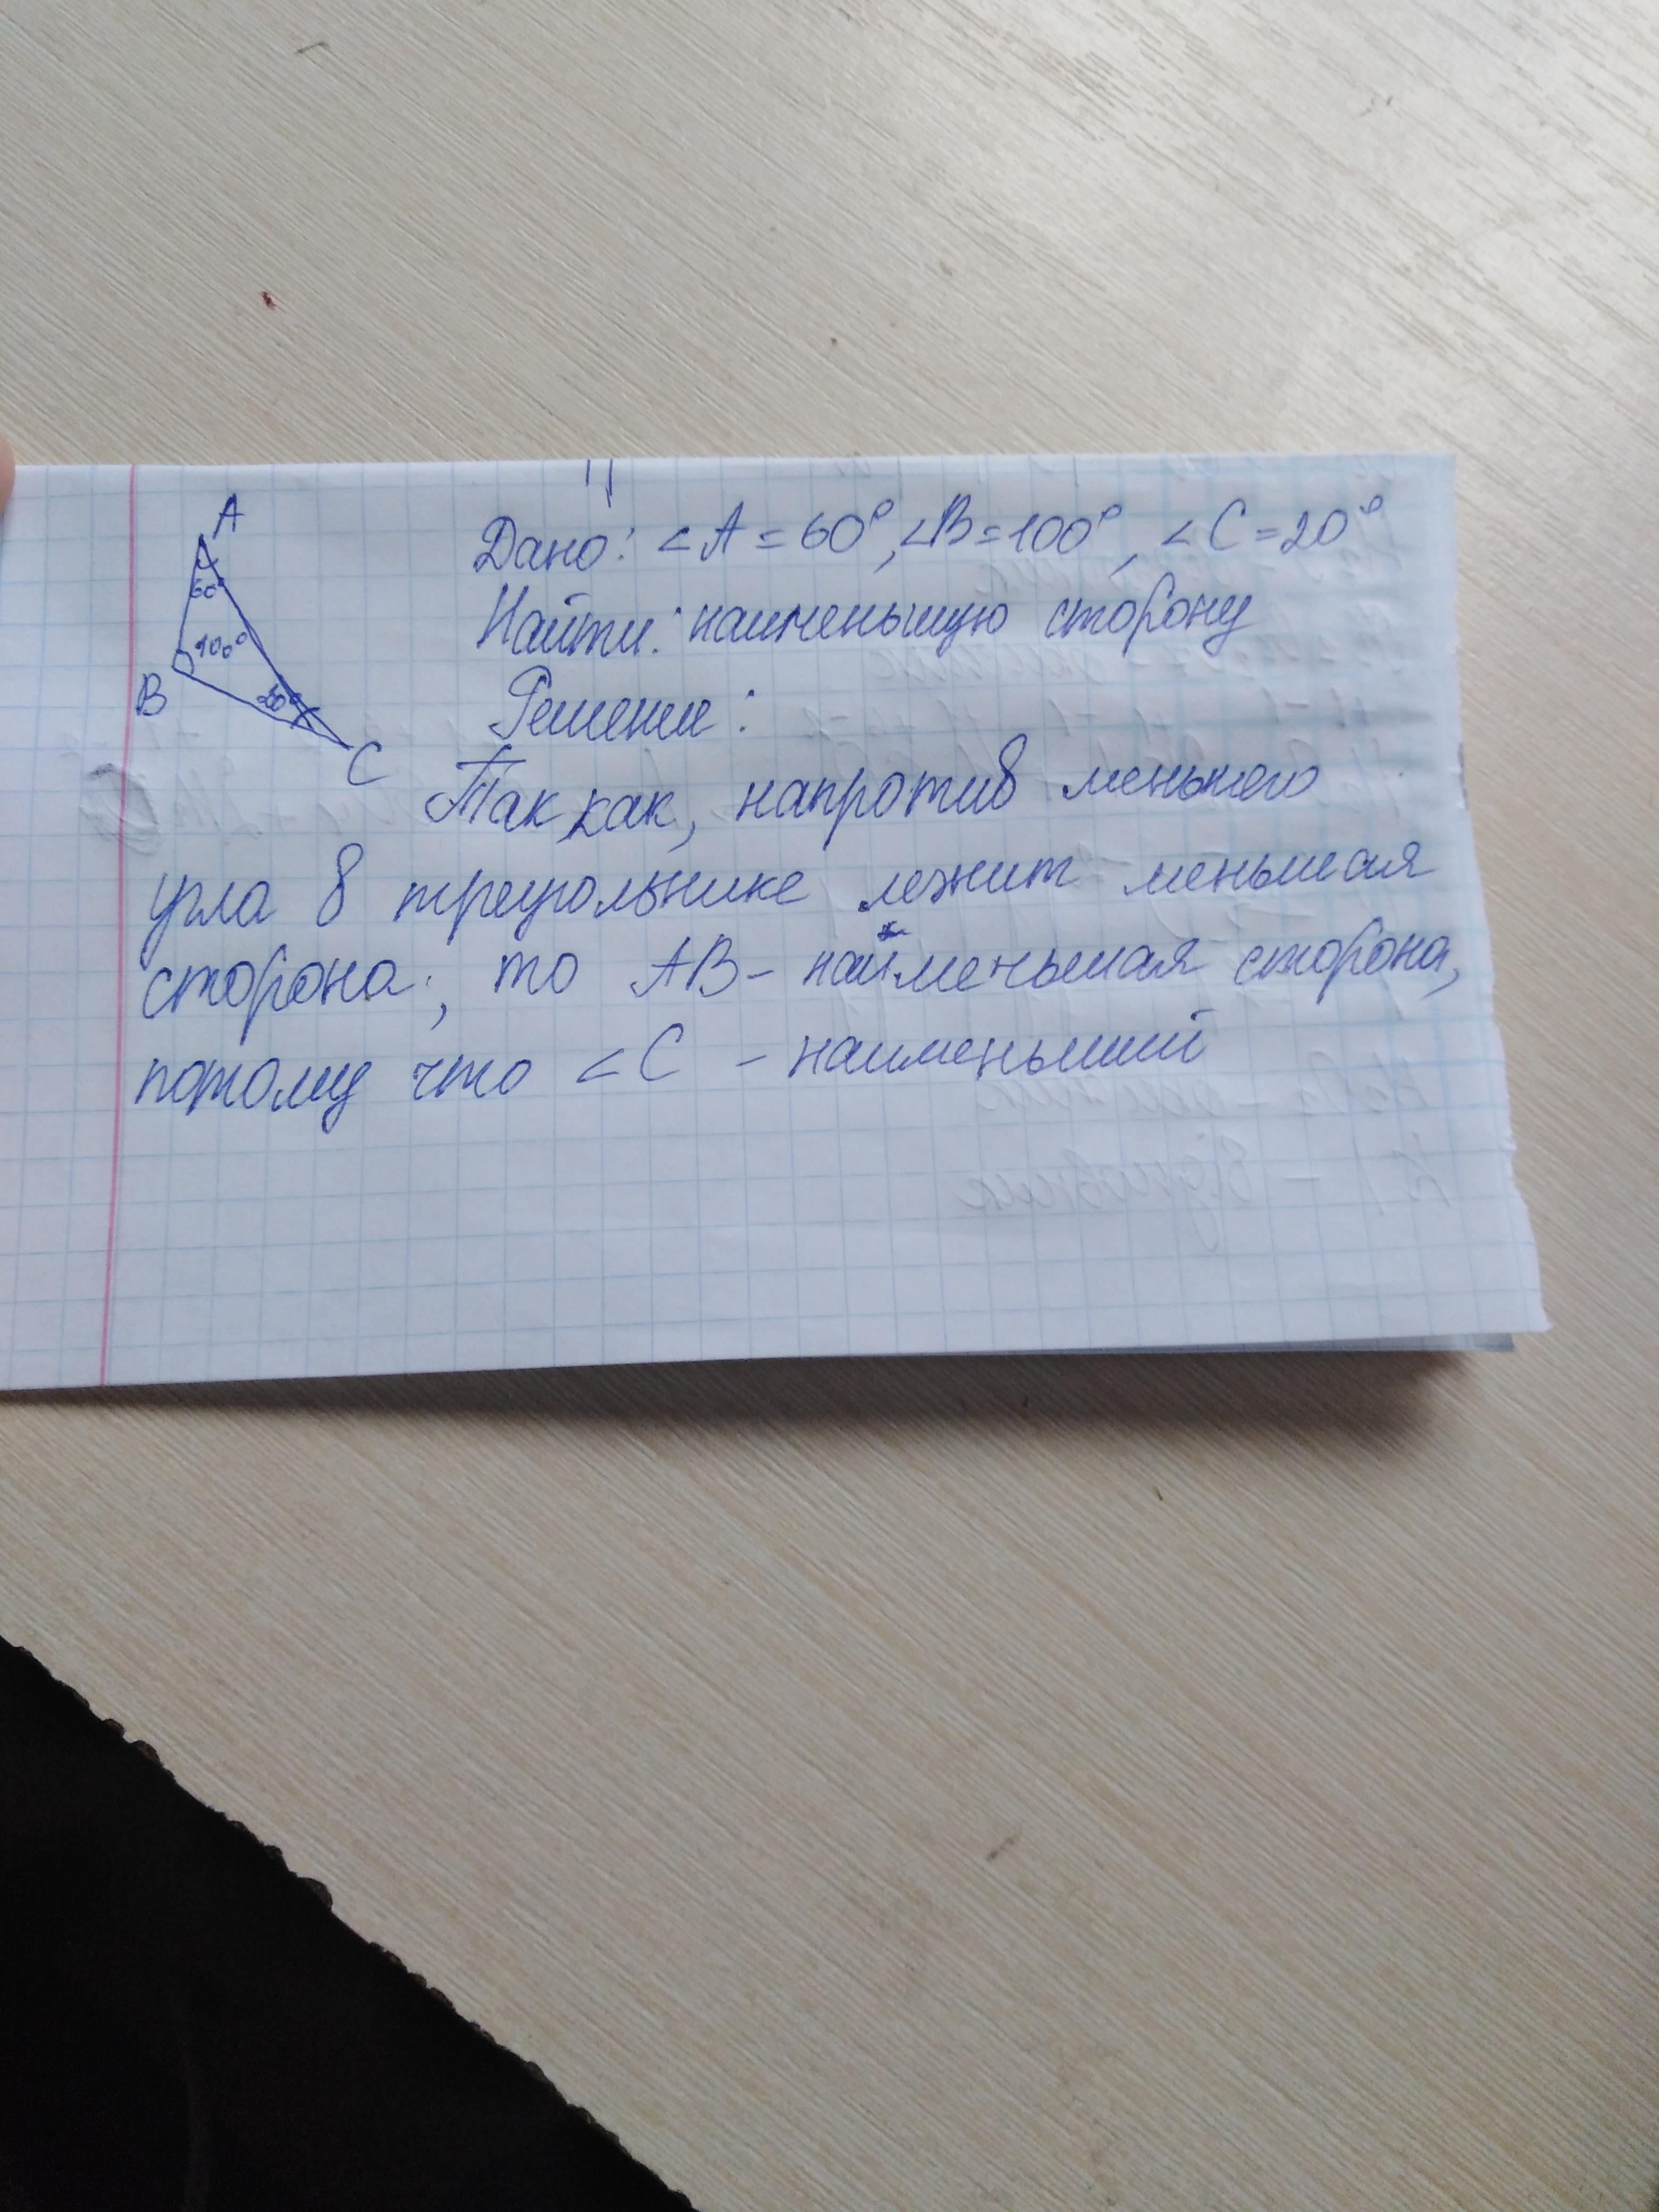 A
60°
100°
B
20°
C
Дано: ∠A = 60°, ∠B = 100°, ∠C = 20°
Найти: наименьшую сторону
Решение:
Так как, напротив меньшего
угла в треугольнике лежит меньшая
сторона, то AB - наименьшая сторона,
потому что ∠C - наименьший